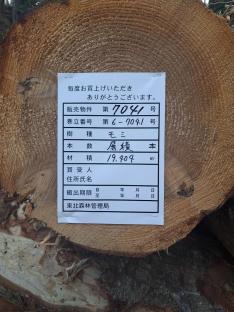 毎度お買上げいただき
ありがとうございます。
販売物件 第 7041 号
巻立番号 第 6-7041 号
樹種 モミ
本数 層積 本
材積 19.404 m³
買受人
住所氏名
搬出期限 自 年 月 日
至 年 月 日
東北森林管理局